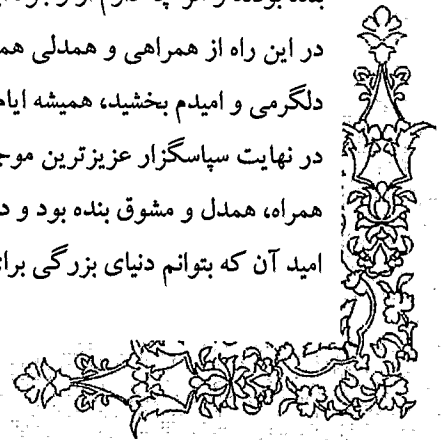 در این راه از همراهی و همدلی
دلگرمی و امیدم بخشید، همیشه
در نهایت سپاسگزار عزیزترین
همراه، همدل و مشوق بنده بود و
امید آن که بتوانم دنیای بزرگی